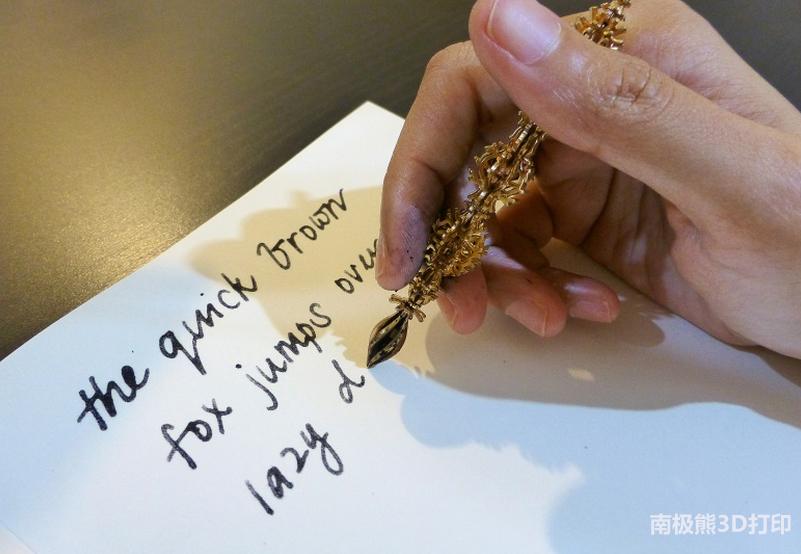 the quick brown
fox jumps over
lazy d
南极熊3D打印